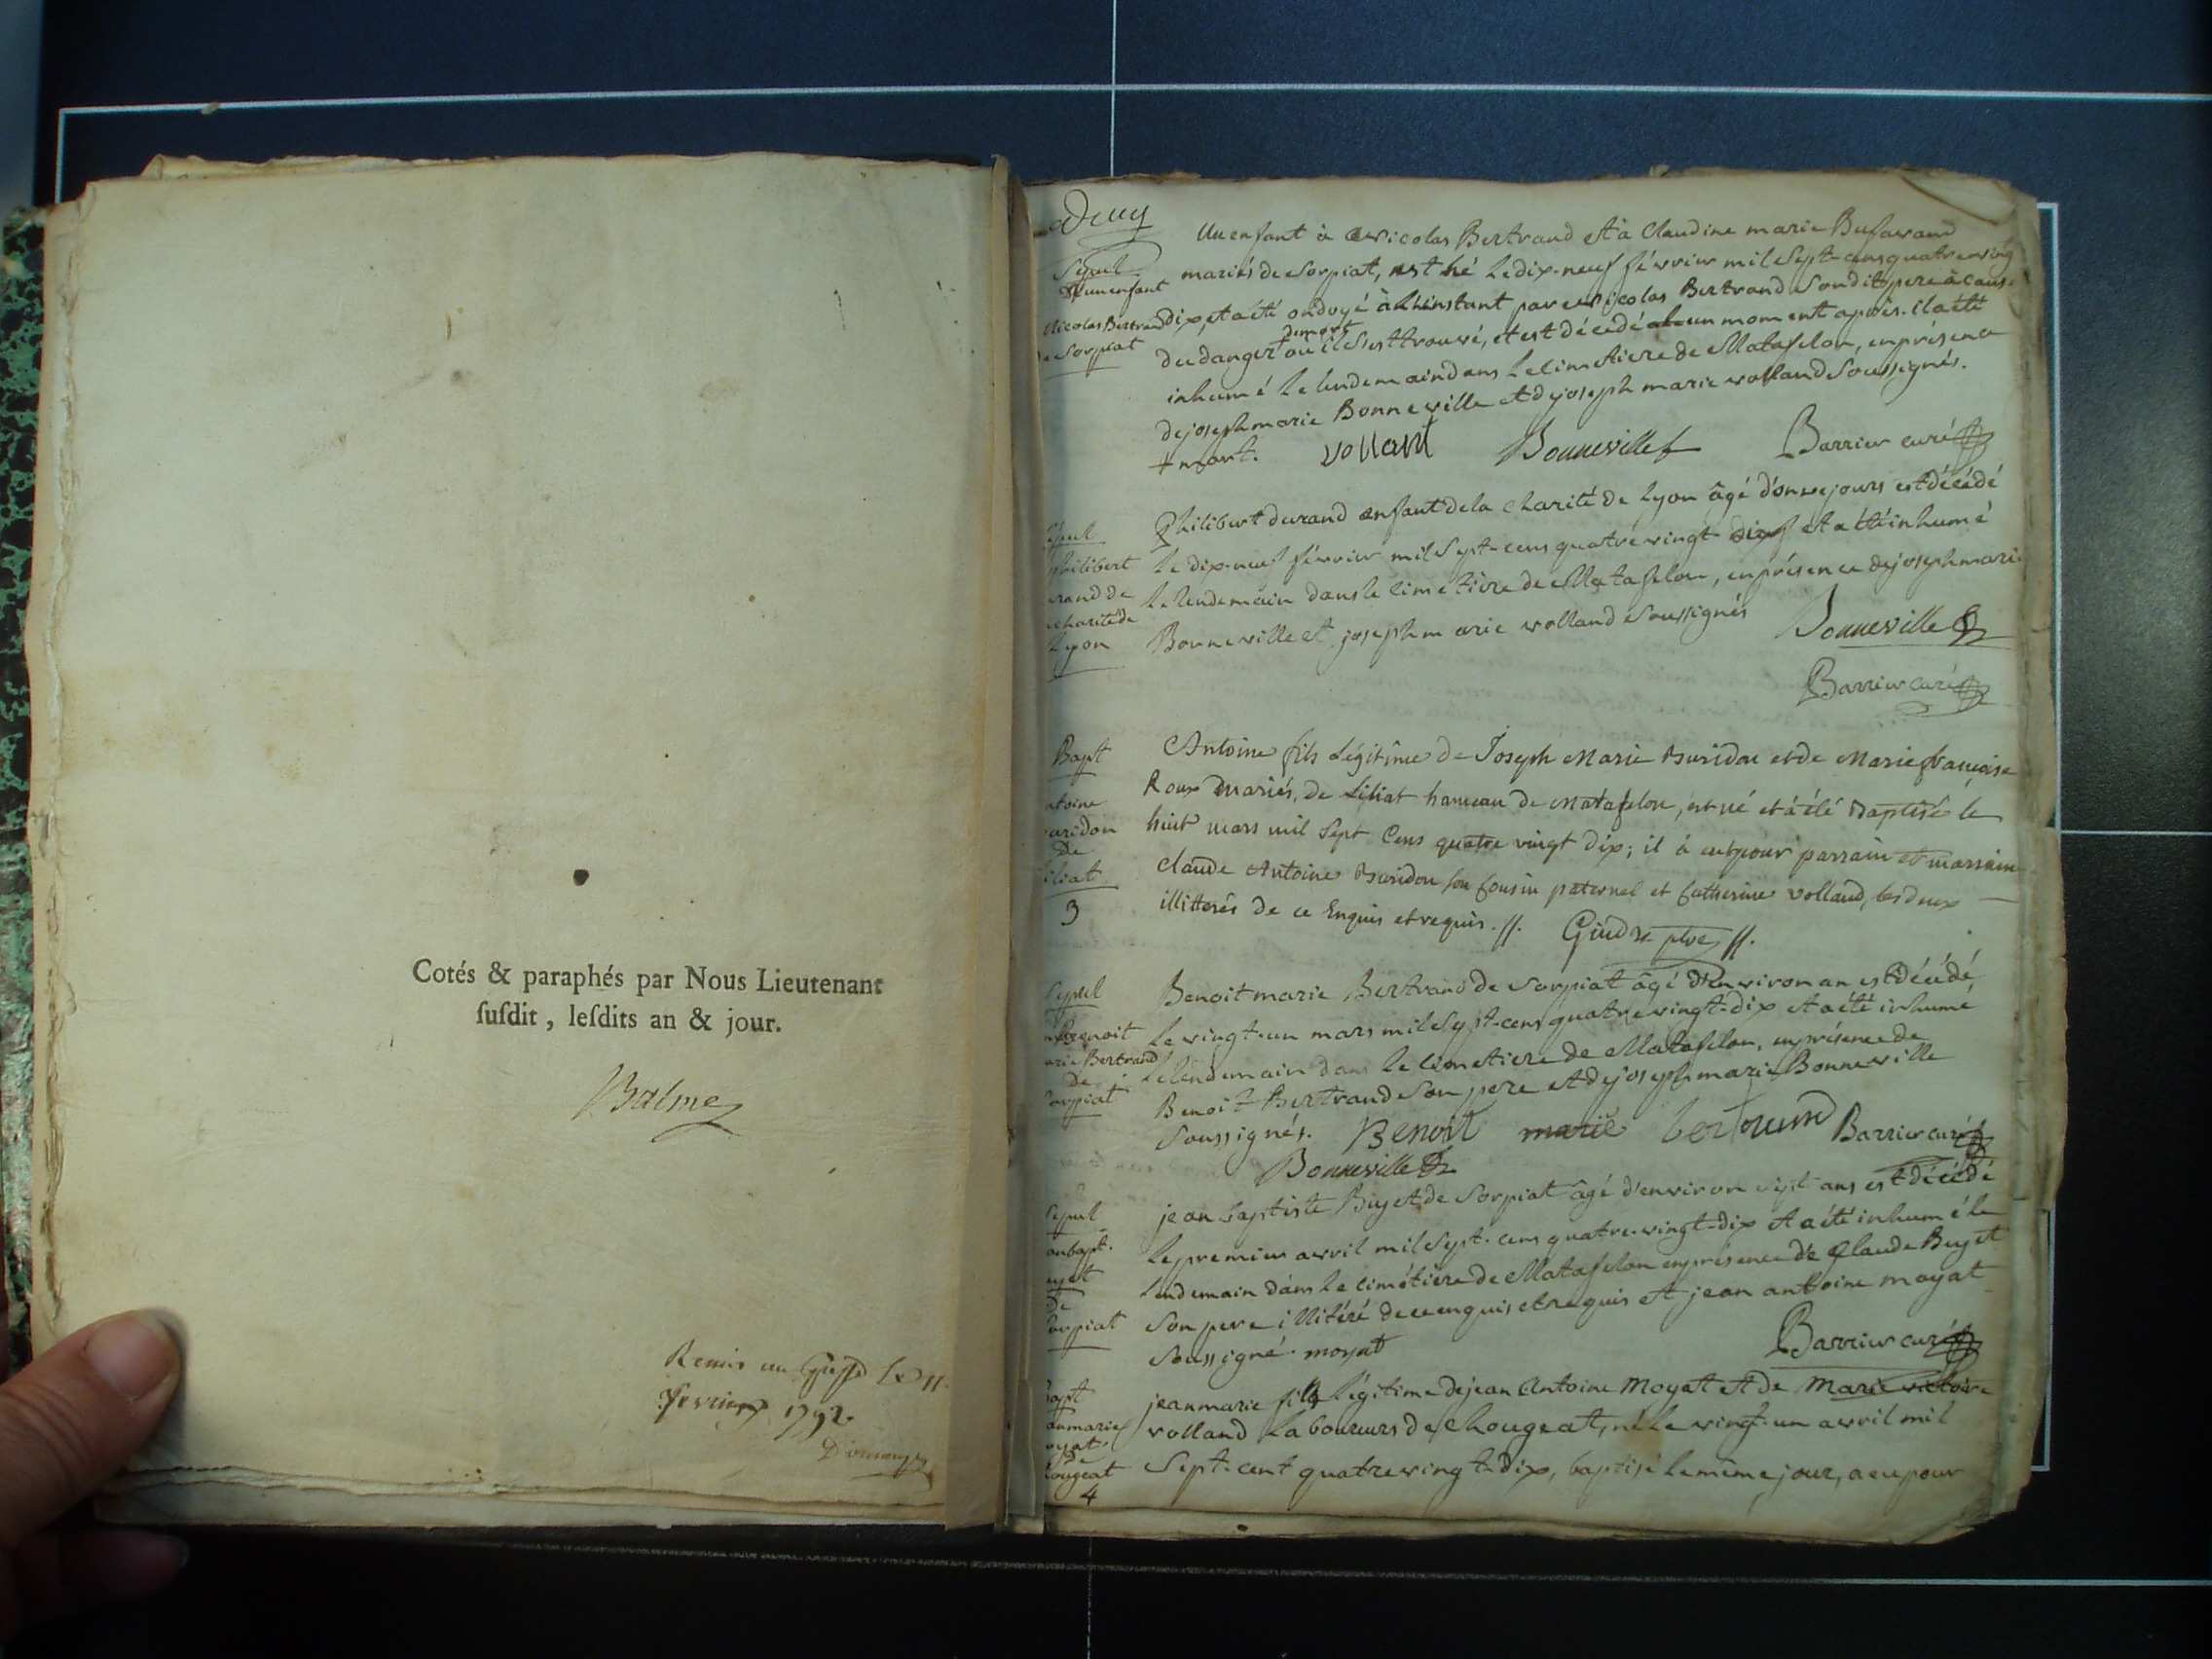 Cotés & paraphés par Nous Lieutenant
ſuſdit, leſdits an & jour.
Balme
Remis au Greffe le 11
fevrier 1792
Deux
Sepul
d'un enfant
Nicolas Bertrand
de Sorpiat
Un enfant à Nicolas Bertrand et à Claudine marie Bufavand
mariés de Sorpiat, est né le dix-neuf février mil sept-cens quatre vingt
dix, et a été ondoyé à l'instant par Nicolas Bertrand son dit pere à cause
du danger + ou il s'est trouvé, et est décédé un moment après. il a été
inhumé le lendemain dans le cimetiere de Matafelon, en présence
de joseph marie Bonneville et de joseph marie volland soussignés.
+ mort. vollant Bonneville Barrier curé
sépul
philibert
urand de
charité de
Lyon
Philibert durand enfant de la charité de Lyon âgé d'onze jours est décédé
le dix-neuf février mil sept-cens quatre vingt dix et a été inhumé
le lendemain dans le cimetière de Matafelon, en présence de joseph marie
Bonneville et joseph marie volland soussignés Bonneville
Barrier curé
Bapt
ntoine
uridon
De
iliat
3
Antoine fils légitime de Joseph Marie Buridon et de Marie françoise
Roux mariés, de Siliat hameau de Matafelon, est né et à été Baptisé le
huit mars mil sept Cens quatre vingt dix; il à eut pour parrain et marraine
claude Antoine Buridon son Cousin paternel et Catherine volland, les deux
illitterés de ce Enquis et requis. //. Gindre ptre //.
sepul
Benoit
arie Bertrand
De
sorpiat
Benoit marie Bertrand de Sorpiat âgé d'environ an est décédé
le vingt-un mars mil sept-cens quatre vingt-dix et a été inhumé
le lendemain dans le cimetiere de Matafelon, en présence de
Benoit Bertrand son pere et de joseph marie Bonneville
soussignés. Benoit marie bertrand Barrier curé
Bonneville
sepul
an bapt.
uget
de
orpiat
jean baptiste Buget de Sorpiat âgé d'environ sept ans est décédé
le premier avril mil sept-cens quatre-vingt-dix et a été inhumé le
lendemain dans le cimétière de Matafelon en présence de Claude Buget
son pere illitéré de ce enquis et requis et jean antoine moyat
soussigné. moyat Barrier curé
bapt
an marie
oyat
de
ougeat
4
jean marie fils légitime de jean Antoine Moyat et de Marie victoire
volland laboureurs de Chougeat, né le vingt-un avril mil
sept-cent quatre vingt-dix, baptisé le même jour, a eu pour